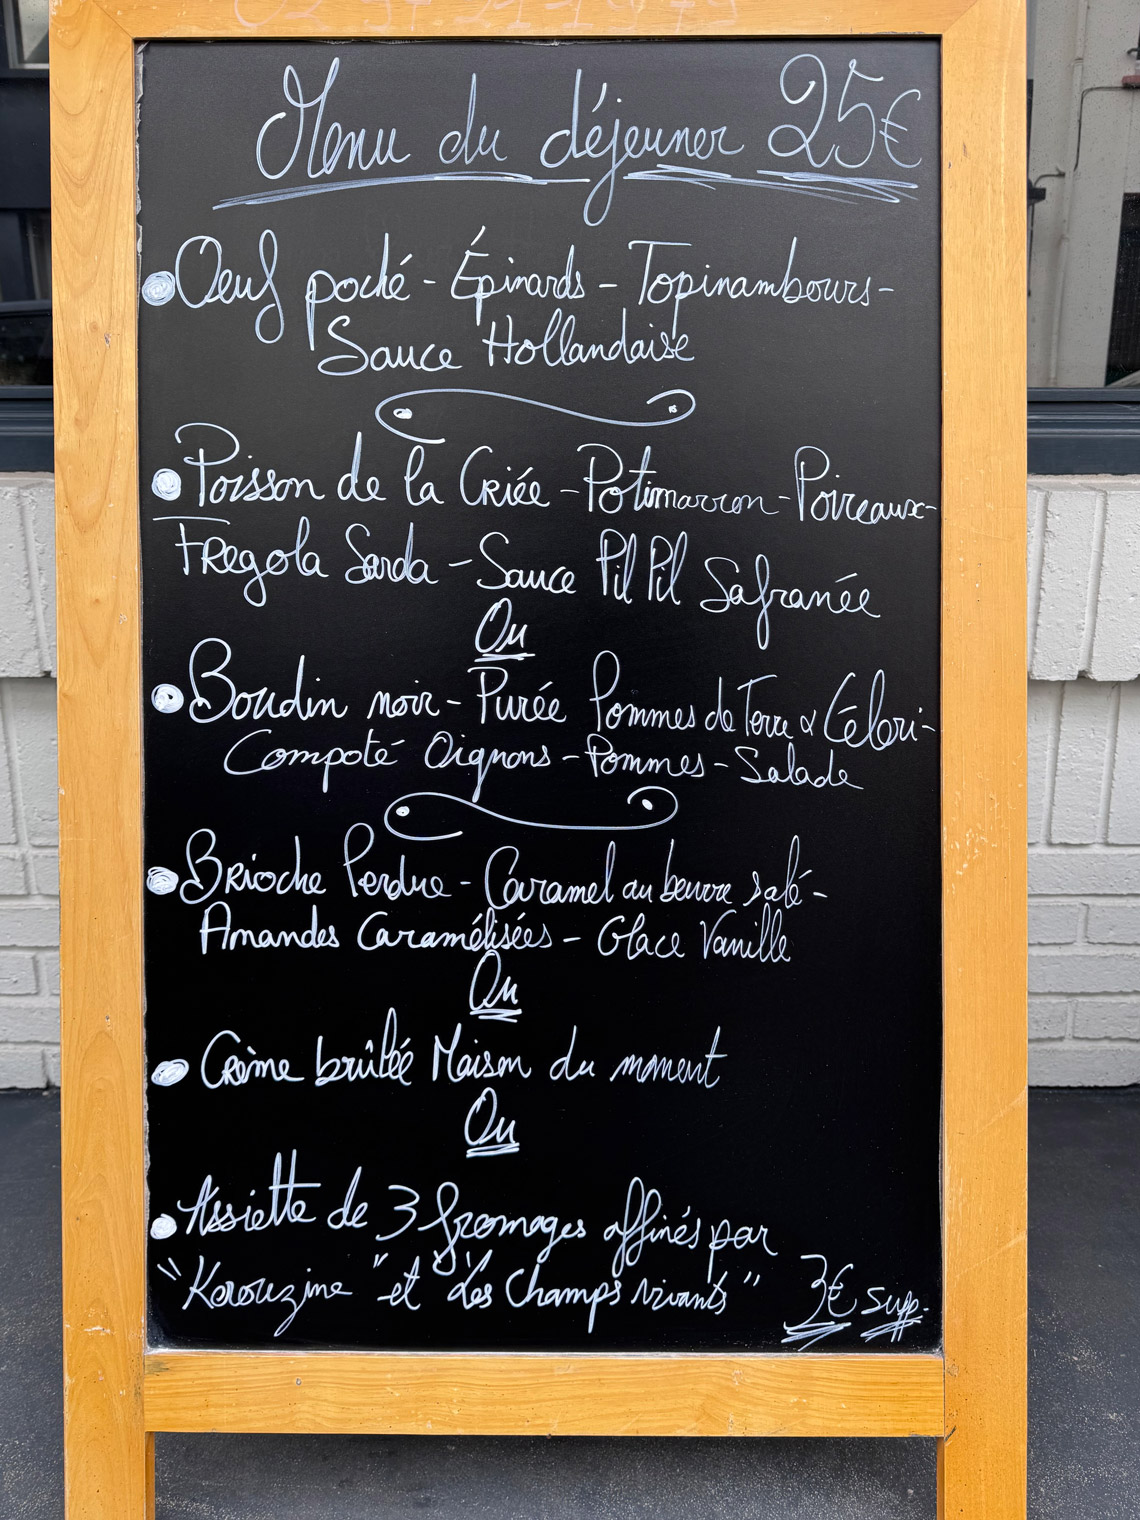 Menu du déjeuner 25€
Oeuf poché - Épinards - Topinambours -
Sauce Hollandaise
Poisson de la Criée - Potimarron - Poireaux -
Fregola Sarda - Sauce Pil Pil Safranée
Ou
Boudin noir - Purée Pommes de Terre & Céleri -
Compoté Oignons - Pommes - Salade
Brioche Perdue - Caramel au beurre salé -
Amandes Caramélisées - Glace Vanille
Ou
Crème brûlée Maison du moment
Ou
Assiette de 3 fromages affinés par
"Kerouzine" et "Les Champs vivants" 3€ supp.